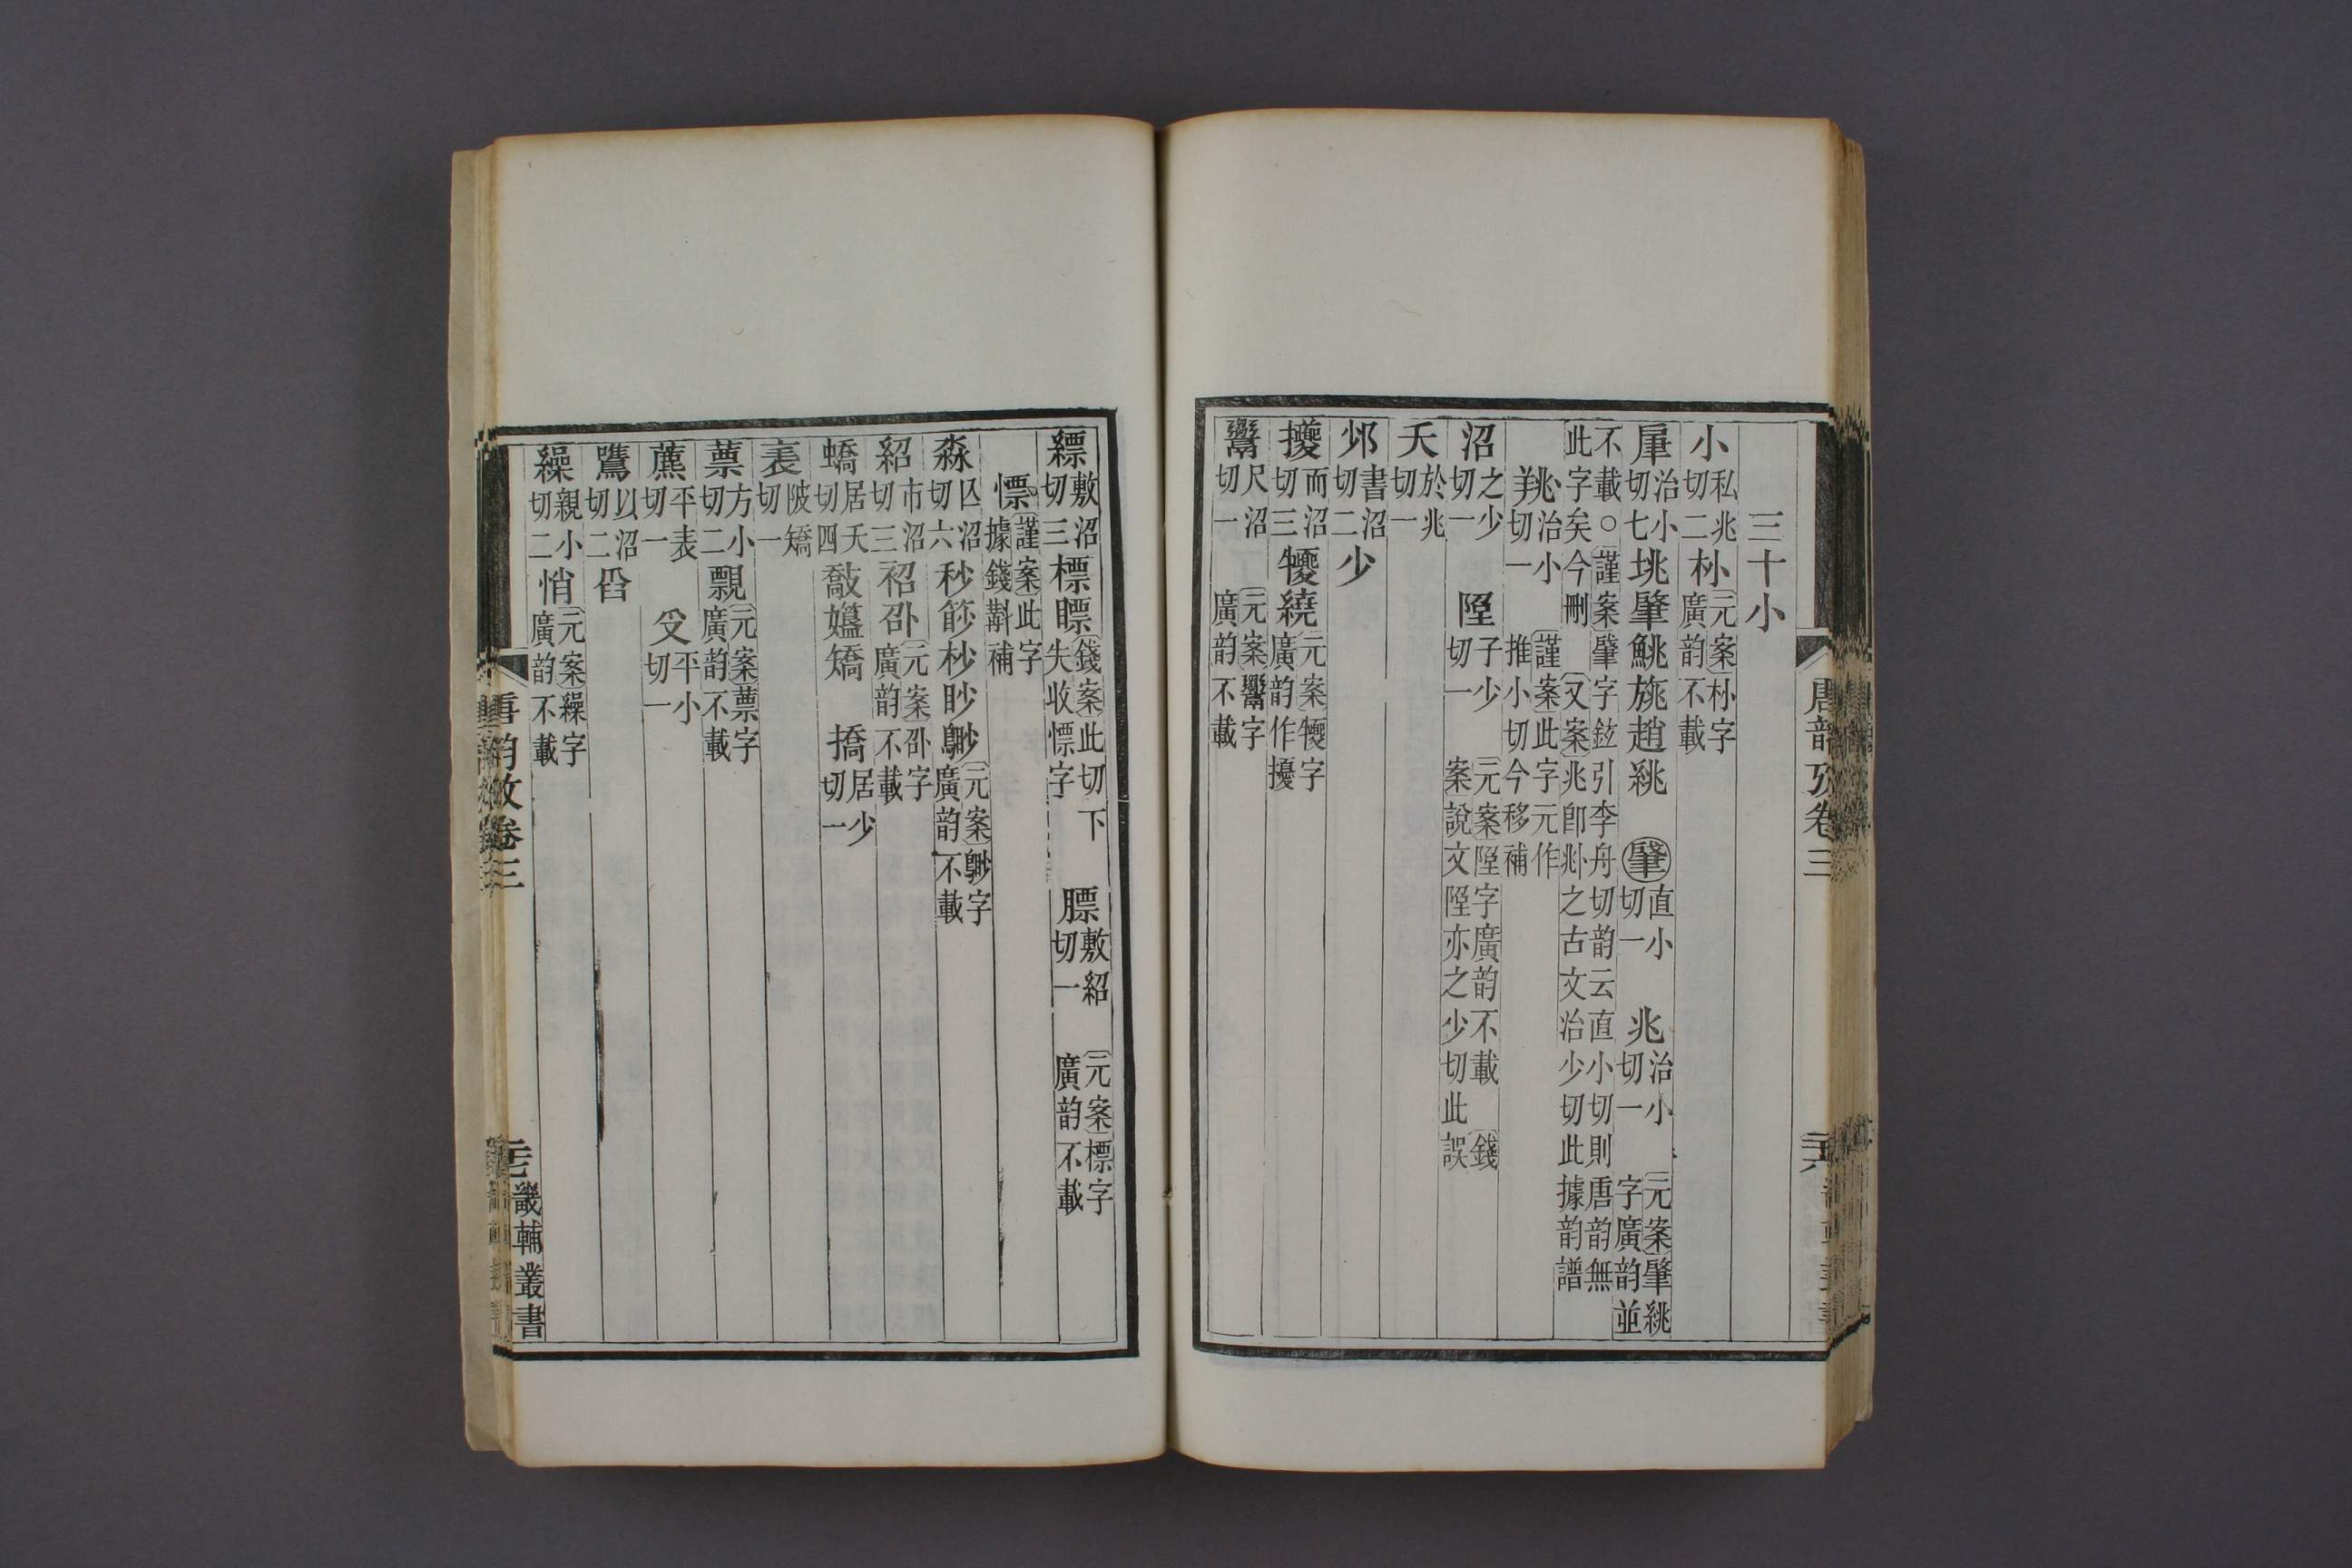 三十小
小私兆切二 㭂元案㭂字廣韵不載
肁治小切七 垗肈鮡旐趙絩 肈直小切一 兆治小切一 元案肈絩字廣韵並
不載○謹案肈字鉉引李舟切韵云直小切則唐韵無此字矣今刪 又案兆卽𠧞之古文治少切此據韵譜
羍治小切一 謹案此字元作推小切今移補
沼之少切一 子少切一 元案字廣韵不載 錢案說文亦之少切此誤
夭於兆切一
邥書沼切二 少
擾而沼切三 犪繞元案犪字廣韵作擾
尺沼切一 元案字廣韵不載
唐韵攷卷三
畿輔叢書
縹敷沼切三 標瞟錢案此切下失收慓字 膘敷紹切一 元案標字廣韵不載
慓謹案此字據錢斠補
淼亾沼切六 秒篎杪眇元案字廣韵不載
紹市沼切三 袑卲元案卲字廣韵不載
蟜居夭切四 敽孂矯 撟居少切一
表陂矯切一
方小切二 覭元案字廣韵不載
藨平表切一 𠬪平小切一
鷕以沼切二 舀
繰親小切二 悄元案繰字廣韵不載
唐韵攷卷三
畿輔叢書